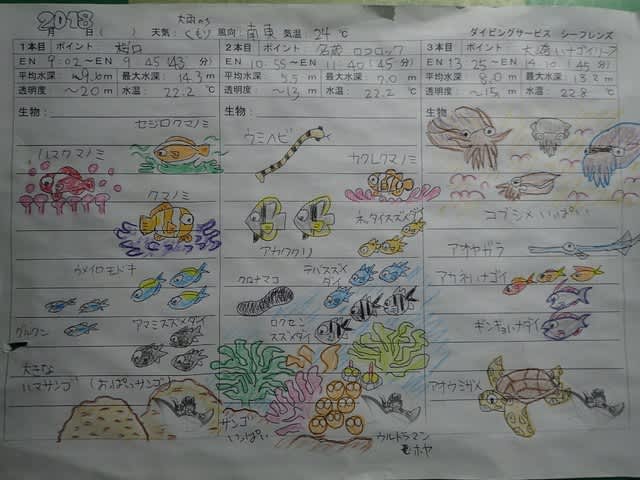 2018
月 日 ( ) 天気: くもり 風向: 南東 気温 24 ℃ ダイビングサービス シーフレンズ
大雨のち
1本目 ポイント
EN 9:02 ~ EN 9 45 (43 分)
平均水深: 9.6m 最大水深: 14.3 m
透明度 ~20 m 水温: 22.2 ℃
生物:
セジロクマノミ
ハマクマノミ
クマノミ
ウメイロモドキ
グルクン
アマミスズメダイ
大きな
ハマサンゴ (おっぱいサンゴ)
2本目 ポイント 名蔵 ロクロック
EN 10:55 ~ EN 11:40 (45 分)
平均水深: 5.5 m 最大水深: 7.0 m
透明度 ~13 m 水温: 22.2 ℃
生物:
ウミヘビ
カクレクマノミ
ネッタイスズメダイ
アカククリ
クロナマコ
デバスズメ
ダイ
ロクセン
スズメダイ
サンゴ
いっぱい
ウルトラマン
ホヤ
3本目 ポイント
EN 13 25 ~ EN 14 10 (45 分)
平均水深: 8.0 m 最大水深: 13.2 m
透明度 ~15 m 水温: 22.8 ℃
生物:
コブシメ いっぱい
アオヤガラ
アカネハナゴイ
キンギョハナダイ
アオウミガメ